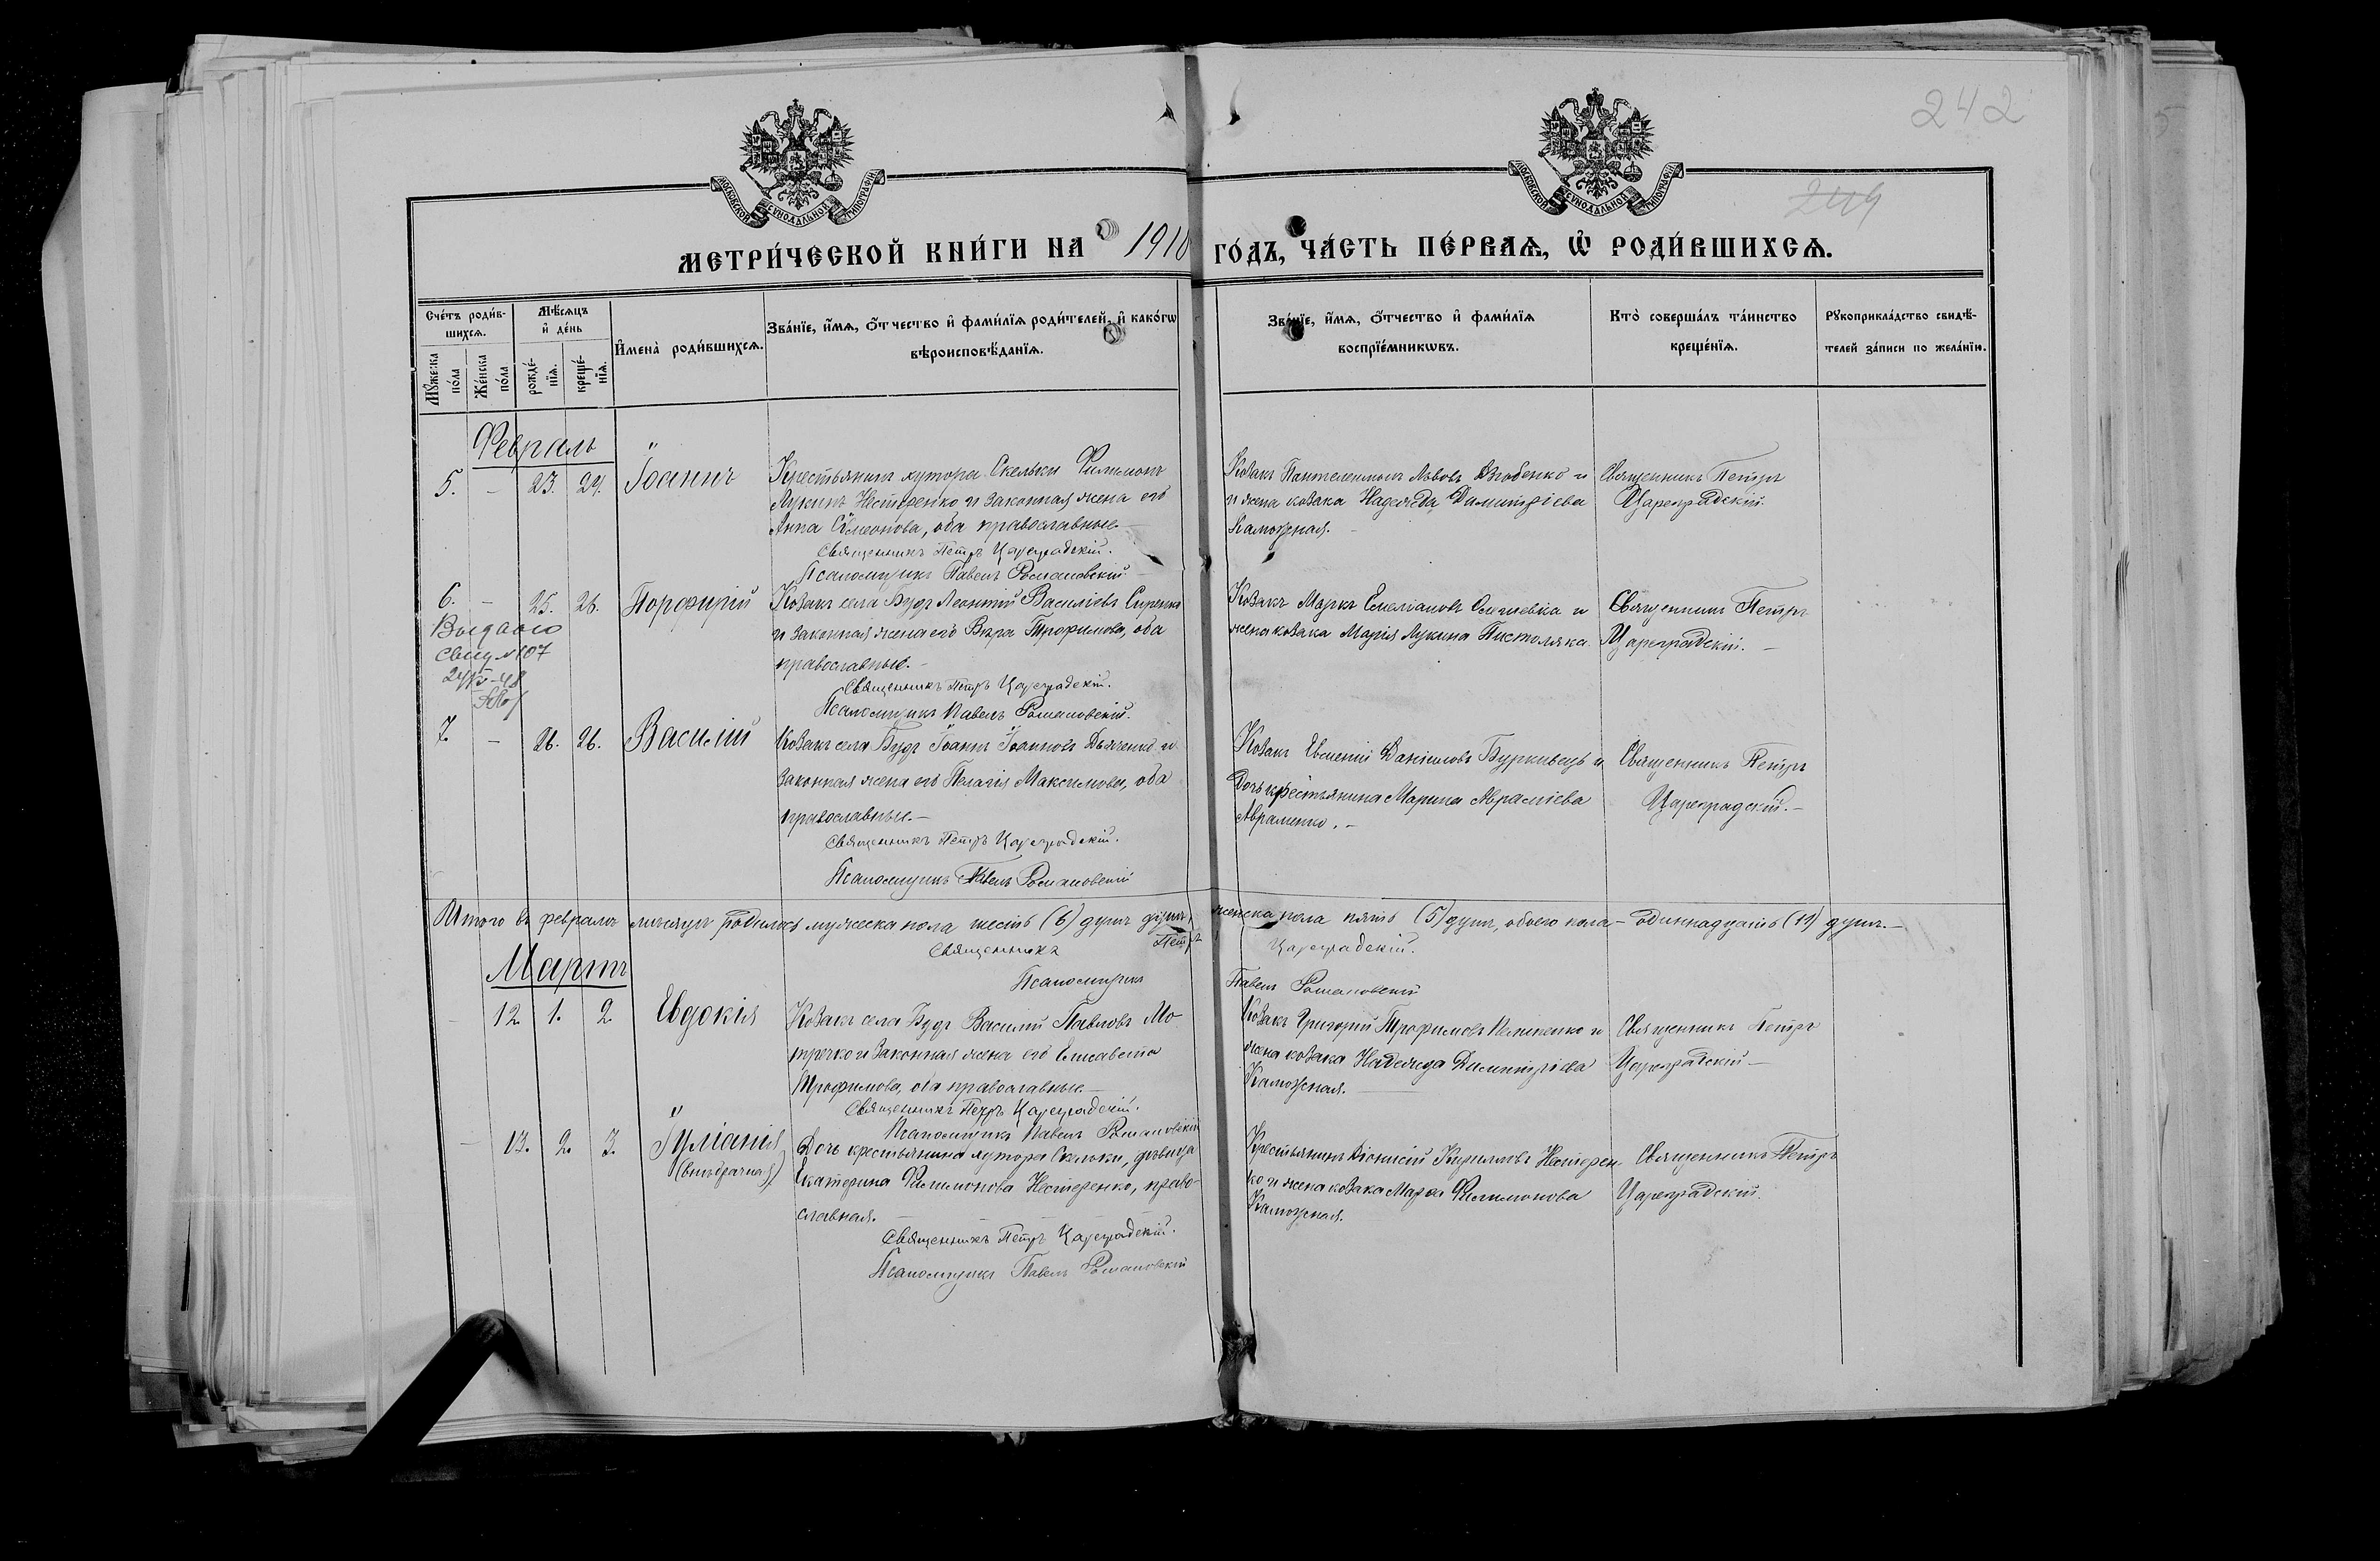 242
249
МОСКОВСКОЙ СѴНОДАЛЬНОЙ ТИПОГРАФІИ
МОСКОВСКОЙ СѴНОДАЛЬНОЙ ТИПОГРАФІИ
МЕТРИ́ЧЕСКОЙ КНИ́ГИ НА 1910 ГО́ДЪ, ЧА́СТЬ ПЕ́РВАѦ, Ѽ РОДИ́ВШИХСѦ.
Сче́тъ роди́в-
шихсѧ.
Мꙋ́жеска по́ла
Же́нска по́ла
Мѣ́сѧцъ
и҆ де́нь
рожде́-
нїѧ.
креще́-
нїѧ.
И҆мена̀ роди́вшихсѧ.
Зва́нїе, и҆́мѧ, ѻ҆́тчество и҆ фами́лїѧ роди́телей, и҆ како́гѡ
вѣроисповѣ́данїѧ.
Зва́нїе, и҆́мѧ, ѻ҆́тчество и҆ фами́лїѧ
воспрїе́мникѡвъ.
Кто̀ соверша́лъ та́инство
креще́нїѧ.
Рꙋкоприкла́дство свидѣ́-
телей за́писи по жела́нїю.
Февраль
5. - 23. 24. Іоаннъ
Крестьянинъ хутора Скельки Филимонъ
Лукинъ Нестеренко и законная жена его
Анна Сѵмеонова, оба православные.
Священникъ Петръ Цареградскій.
Псаломщикъ Павелъ Романовскій
Козакъ Пантелеимонъ Львовъ и
и жена козака Надежда Димитріева
Каможная.
Священникъ Петръ
Цареградскій.
6. - 25. 26. Порфирій
Выдано
свид №107
Козакъ села Будъ Леонтій Василіевъ
и законная жена его Вѣра Трофимова, оба
православные.-
Священникъ Петръ Цареградскій.
Псаломщикъ Павелъ Романовскій.
Козакъ Маркъ Емеліановъ и
жена козака Марія Лукина Пистоляка.
Священникъ Петръ
Цареградскій. -
7. - 26. 26. Василій
Козакъ села Будъ Іоаннъ Іоанновъ Дьяченко и
законная жена его Пелагія Максимова, оба
православные.-
Священникъ Петръ Цареградскій.
Псаломщикъ Павелъ Романовскій
Козакъ Евгеній Даніиловъ Буркивецъ и
дочь крестьянина Марина Авраміева
Авраменко. -
Священникъ Петръ
Цареградскій.-
Итого въ февралѣ мѣсяцѣ родилось мужеска пола шесть (6) душъ женска пола пять (5) душъ, обоего пола - одиннадцать (11) душъ.-
Священникъ Петръ Цареградскій.
Псаломщикъ Павелъ Романовскій
Мартъ
- 12. 1. 2. Евдокія
Козакъ села Будъ Василій Павловъ Мо-
тречко и законная жена его Елисавета
Трофимова, оба православные.-
Священникъ Петръ Цареградскій.
Псаломщикъ Павелъ Романовскій
Козакъ Григорій Трофимовъ и
жена козака Надежда Димитріева
Каможная.
Священникъ Петръ
Цареградскій -
- 13. 2. 3. Іуліанія
(внѣбрачная)
Дочь крестьянина хутора Скельки, дѣвица
Екатерина Филимонова Нестеренко, право-
славная.
Священникъ Петръ Цареградскій.
Псаломщикъ Павелъ Романовскій
Крестьянинъ Діонисій Кирилловъ Нестерен-
ко и жена козака Марѳа Филимонова
Каможная.
Священникъ Петръ
Цареградскій.